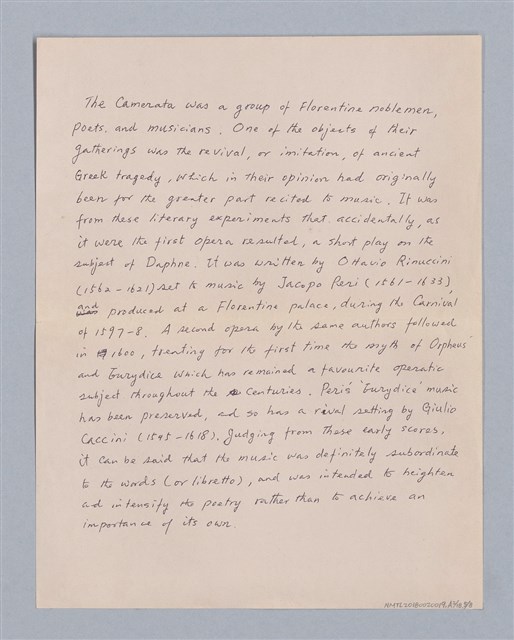 The Camerata was a group of Florentine noblemen,
poets, and musicians. One of the objects of their
gatherings was the revival, or imitation, of ancient
Greek tragedy, which in their opinion had originally
been for the greater part recited to music. It was
from these literary experiments that accidentally, as
it were the first opera resulted, a short play on the
subject of Daphne. It was written by Ottavio Rinuccini
(1562-1621) set to music by Jacopo Peri (1561-1633),
and produced at a Florentine palace, during the Carnival
of 1597-8. A second opera by the same authors followed
in 1600, treating for the first time the myth of Orpheus
and Eurydice which has remained a favourite operatic
subject throughout the centuries. Peri's 'Eurydice' music
has been preserved, ad so has a rival setting by Giulio
Caccini (1545-1618). Judging from these early scores,
it can be said that the music was definitely subordinate
to the words (or libretto), and was intended to heighten
ad intensify the poetry rather than to achieve an
importance of its own.